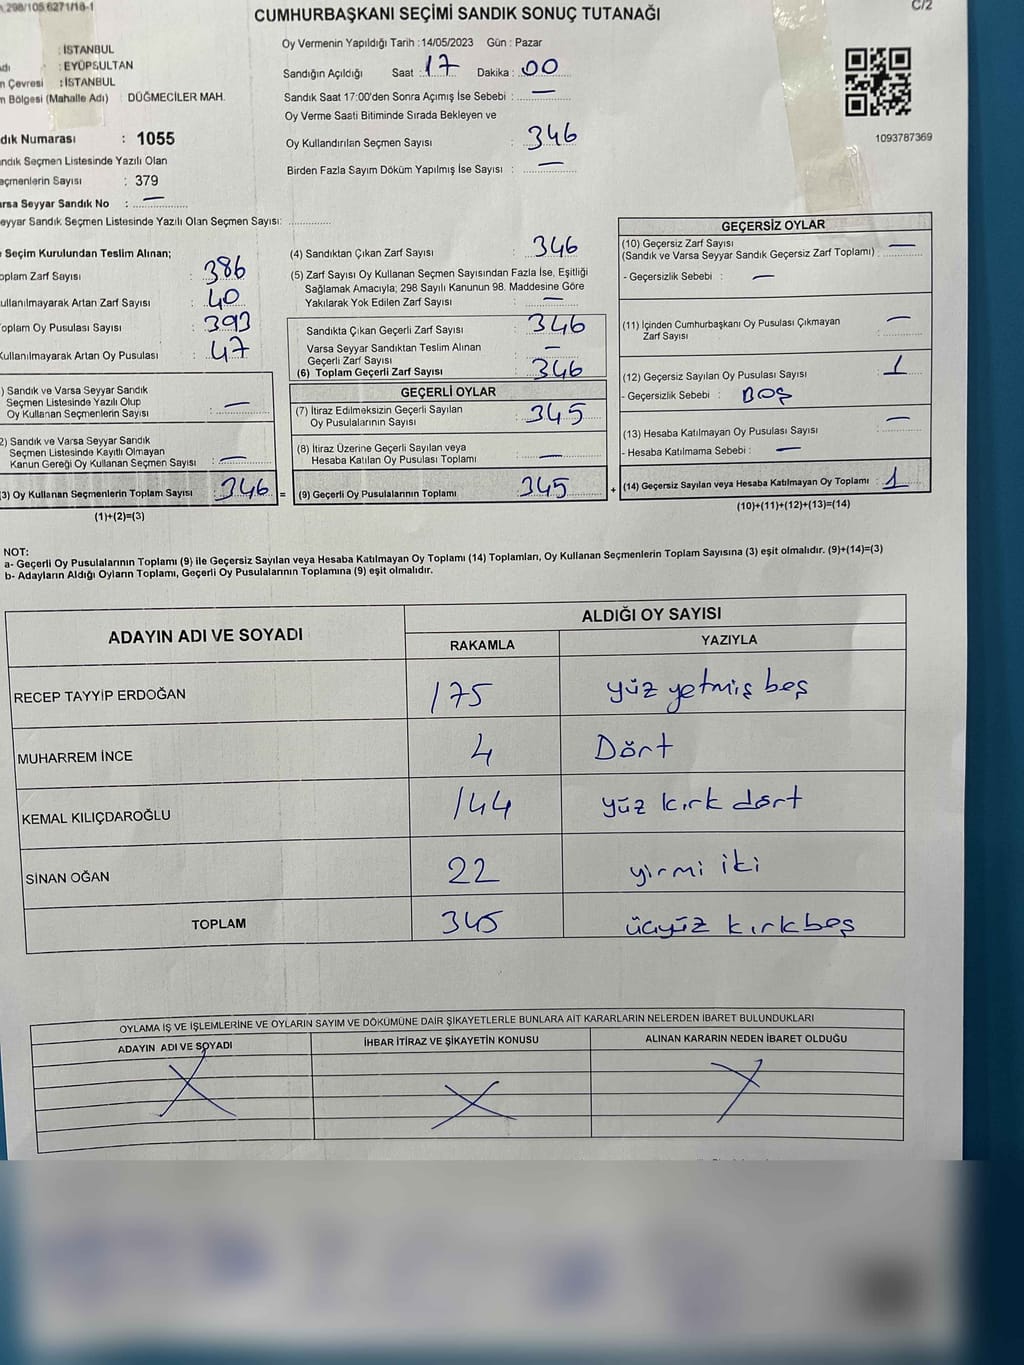 298/105.6271/18-1
C/2
CUMHURBAŞKANI SEÇİMİ SANDIK SONUÇ TUTANAĞI
: İSTANBUL
: EYÜPSULTAN
Çevresi : İSTANBUL
Bölgesi (Mahalle Adı) DÜĞMECİLER MAH.
Numarası : 1055
Seçmen Listesinde Yazılı Olan
Sayısı : 379
Varsa Seyyar Sandık No : —
Seyyar Sandık Seçmen Listesinde Yazılı Olan Seçmen Sayısı:
Oy Vermenin Yapıldığı Tarih :14/05/2023 Gün : Pazar
Sandığın Açıldığı Saat : 17 Dakika : 00
Sandık Saat 17:00'den Sonra Açımış İse Sebebi : —
Oy Verme Saati Bitiminde Sırada Bekleyen ve
Oy Kullandırılan Seçmen Sayısı : 346
Birden Fazla Sayım Döküm Yapılmış İse Sayısı : —
1093787369
Seçim Kurulundan Teslim Alınan;
Toplam Zarf Sayısı : 386
Kullanılmayarak Artan Zarf Sayısı : 40
Toplam Oy Pusulası Sayısı : 393
Kullanılmayarak Artan Oy Pusulası : 47
) Sandık ve Varsa Seyyar Sandık
Seçmen Listesinde Yazılı Olup
Oy Kullanan Seçmenlerin Sayısı : —
2) Sandık ve Varsa Seyyar Sandık
Seçmen Listesinde Kayıtlı Olmayan
Kanun Gereği Oy Kullanan Seçmen Sayısı : —
(3) Oy Kullanan Seçmenlerin Toplam Sayısı : 346 =
(1)+(2)=(3)
(4) Sandıktan Çıkan Zarf Sayısı : 346
(5) Zarf Sayısı Oy Kullanan Seçmen Sayısından Fazla İse, Eşitliği
Sağlamak Amacıyla; 298 Sayılı Kanunun 98. Maddesine Göre
Yakılarak Yok Edilen Zarf Sayısı : —
Sandıkta Çıkan Geçerli Zarf Sayısı : 346
Varsa Seyyar Sandıktan Teslim Alınan
Geçerli Zarf Sayısı : —
(6) Toplam Geçerli Zarf Sayısı : 346
GEÇERLİ OYLAR
(7) İtiraz Edilmeksizin Geçerli Sayılan
Oy Pusulalarının Sayısı : 345
(8) İtiraz Üzerine Geçerli Sayılan veya
Hesaba Katılan Oy Pusulası Toplamı : —
(9) Geçerli Oy Pusulalarının Toplamı : 345 +
GEÇERSİZ OYLAR
(10) Geçersiz Zarf Sayısı
(Sandık ve Varsa Seyyar Sandık Geçersiz Zarf Toplamı) : —
- Geçersizlik Sebebi : —
(11) İçinden Cumhurbaşkanı Oy Pusulası Çıkmayan
Zarf Sayısı : —
(12) Geçersiz Sayılan Oy Pusulası Sayısı : 1
- Geçersizlik Sebebi : BOŞ
(13) Hesaba Katılmayan Oy Pusulası Sayısı : —
- Hesaba Katılmama Sebebi : —
(14) Geçersiz Sayılan veya Hesaba Katılmayan Oy Toplamı : 1
(10)+(11)+(12)+(13)=(14)
NOT:
a- Geçerli Oy Pusulalarının Toplamı (9) ile Geçersiz Sayılan veya Hesaba Katılmayan Oy Toplamı (14) Toplamları, Oy Kullanan Seçmenlerin Toplam Sayısına (3) eşit olmalıdır. (9)+(14)=(3)
b- Adayların Aldığı Oyların Toplamı, Geçerli Oy Pusulalarının Toplamına (9) eşit olmalıdır.
ADAYIN ADI VE SOYADI ALDIĞI OY SAYISI
RAKAMLA YAZIYLA
RECEP TAYYİP ERDOĞAN 175 yüz yetmiş beş
MUHARREM İNCE 4 Dört
KEMAL KILIÇDAROĞLU 144 yüz kırk dört
SİNAN OĞAN 22 yirmi iki
TOPLAM 345 üçyüz kırkbeş
OYLAMA İŞ VE İŞLEMLERİNE VE OYLARIN SAYIM VE DÖKÜMÜNE DAİR ŞİKAYETLERLE BUNLARA AİT KARARLARIN NELERDEN İBARET BULUNDUKLARI
ADAYIN ADI VE SOYADI İHBAR İTİRAZ VE ŞİKAYETİN KONUSU ALINAN KARARIN NEDEN İBARET OLDUĞU